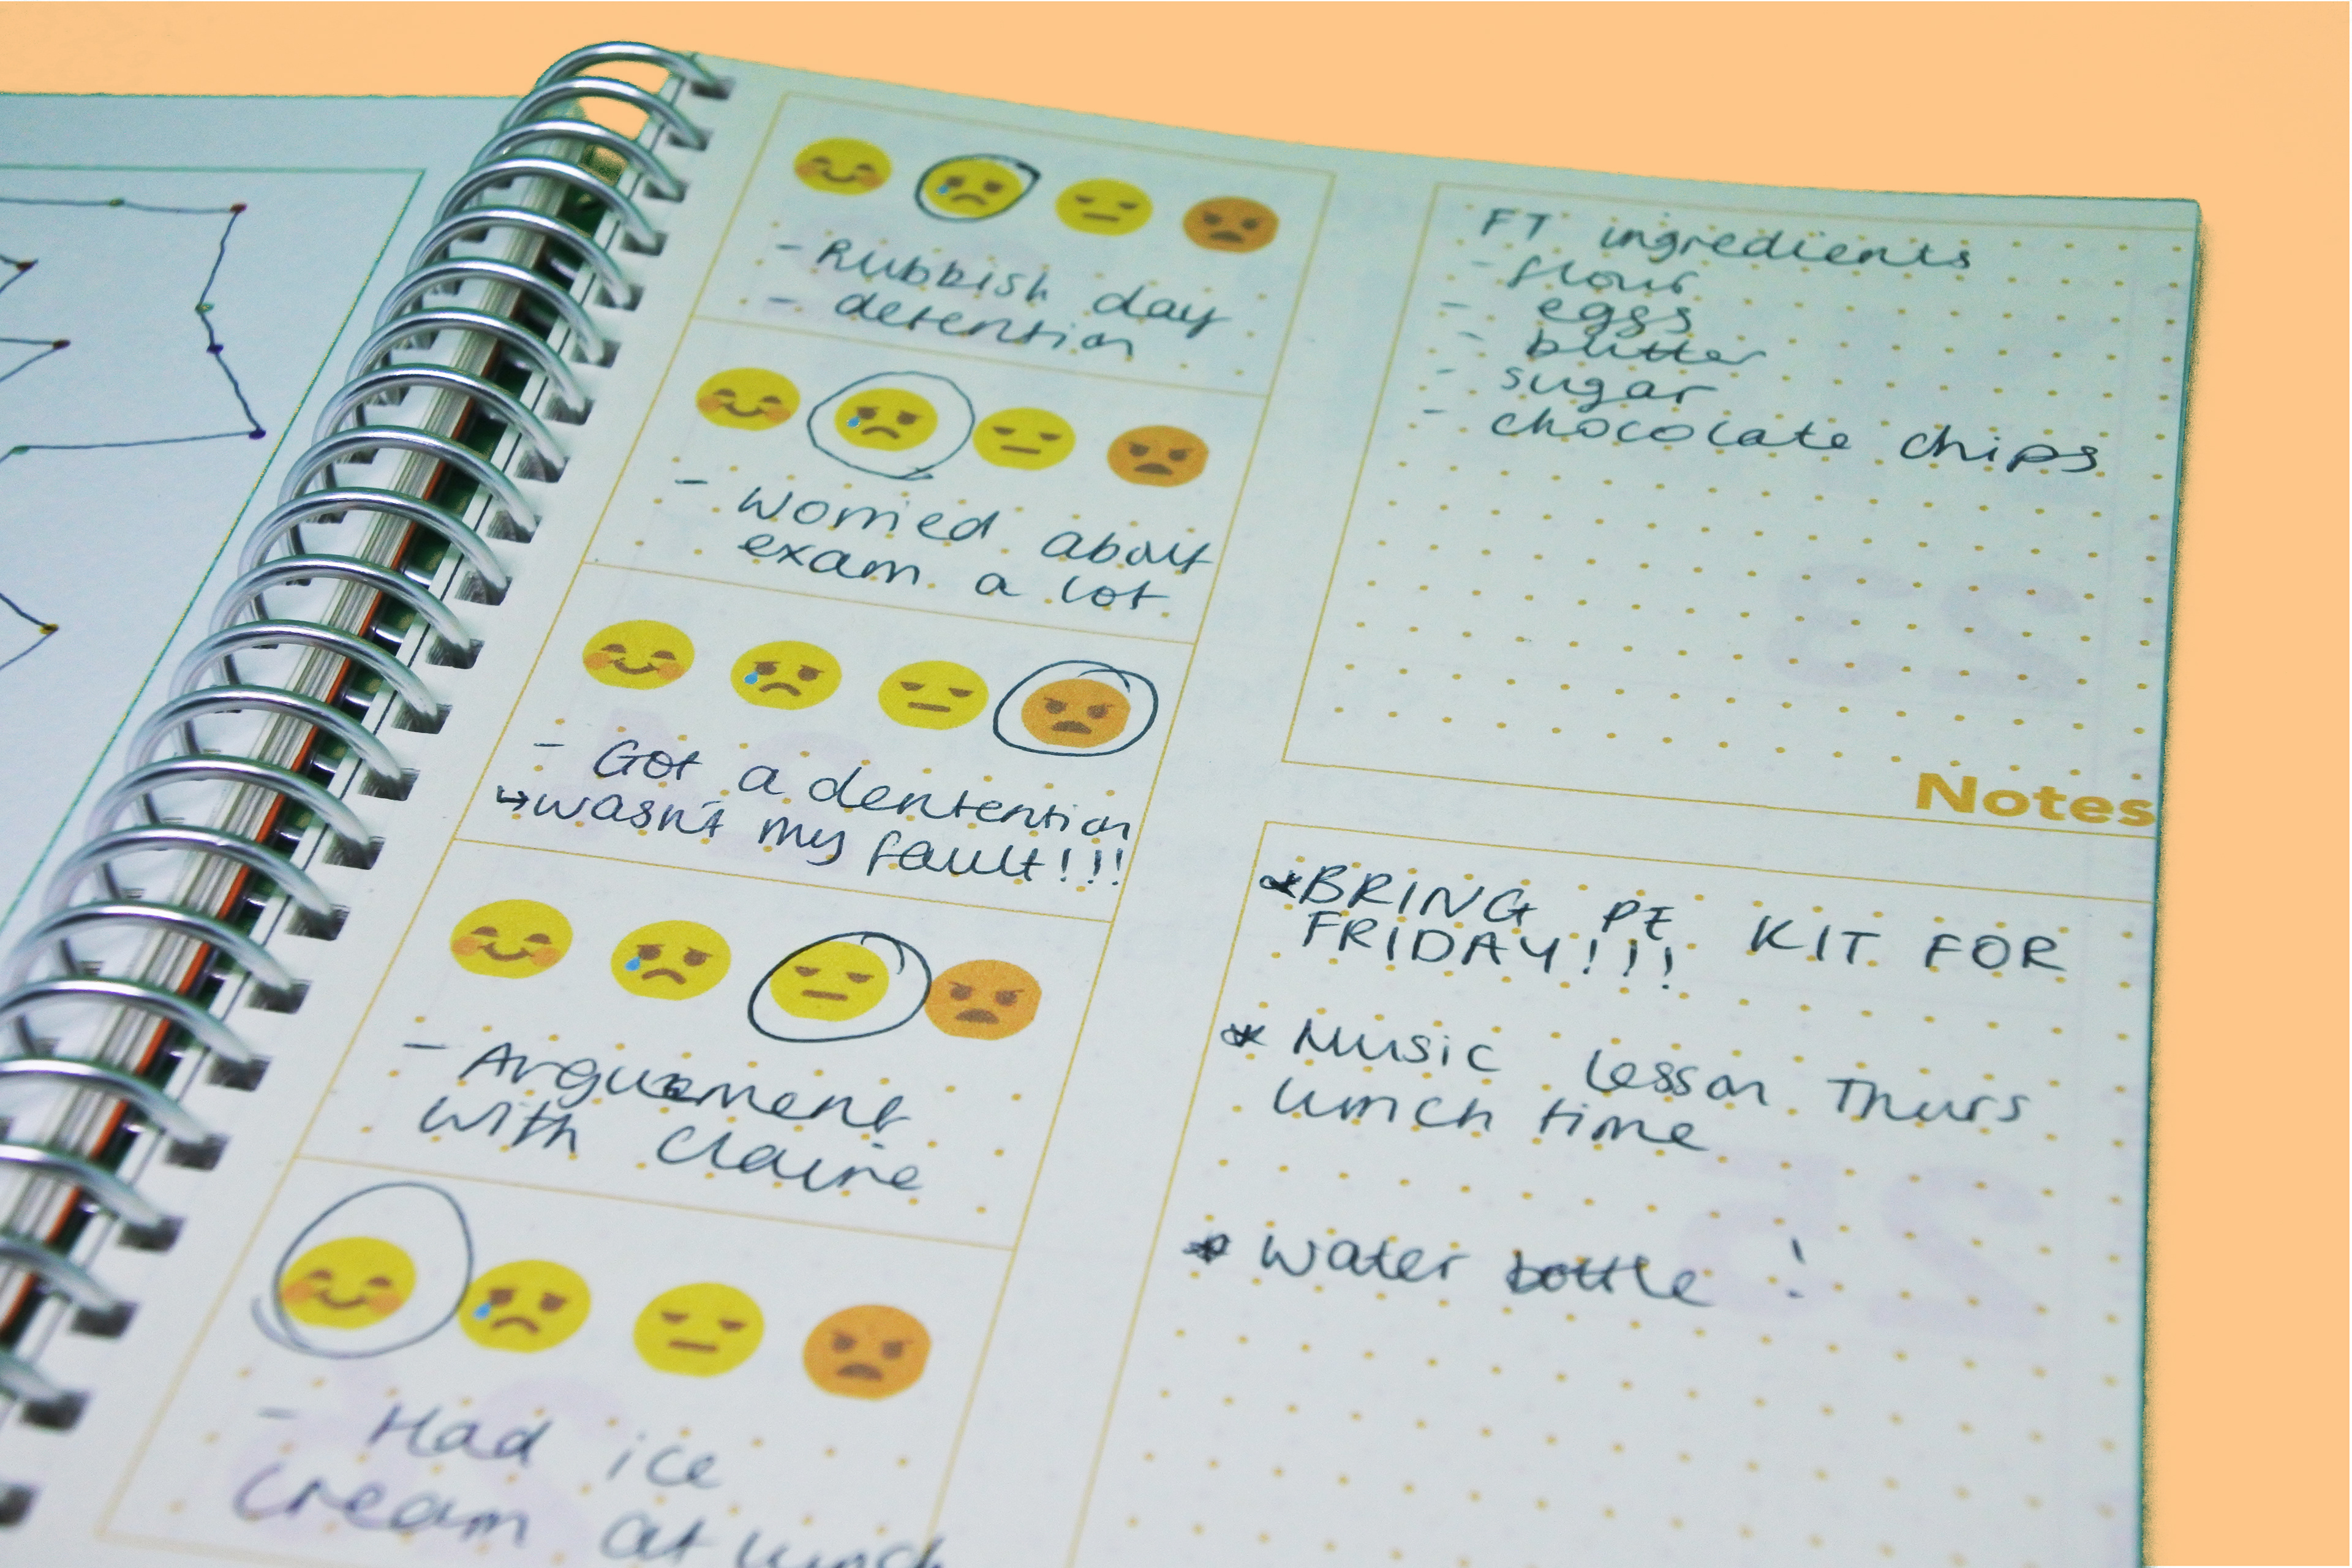 - Rubbish day
- detention
- Worried about
exam a lot
- Got a dentention
↳ wasn't my fault!!!
- Arguement
with Claire
- Had ice
cream at lunch
FT ingredients
- flour
- eggs
- butter
- sugar
- chocolate chips
Notes
* BRING PE KIT FOR
FRIDAY!!!
* Music lesson Thurs
lunch time
* Water bottle !
23
25